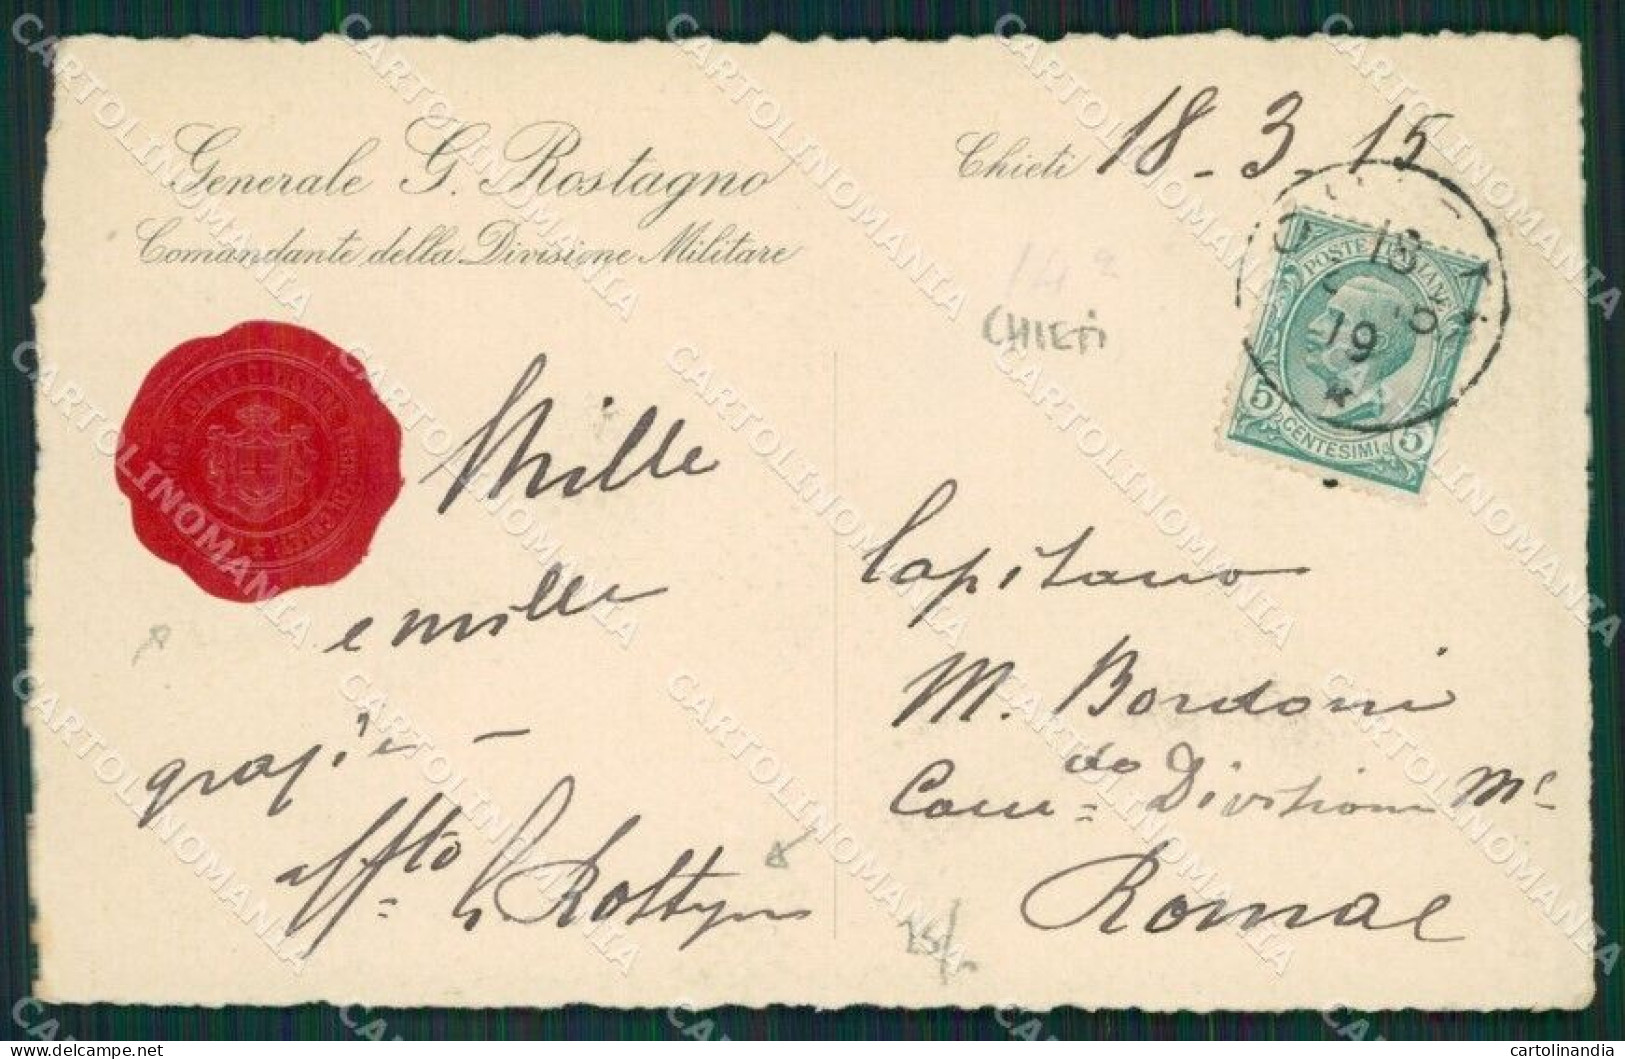 Generale G. Rostagno
Comandante della Divisione Militare
Chieti 18 - 3 - 15
14ª
CHIETI
POSTE ITALIANE
18
19
5 CENTESIMI 5
Mille
e mille
grazie -
affto G Rostagno
Capitano
M. Bordoni
Comdo Divisione Mre
Roma
25/-
CARTOLINOMANIA
cartolinandia